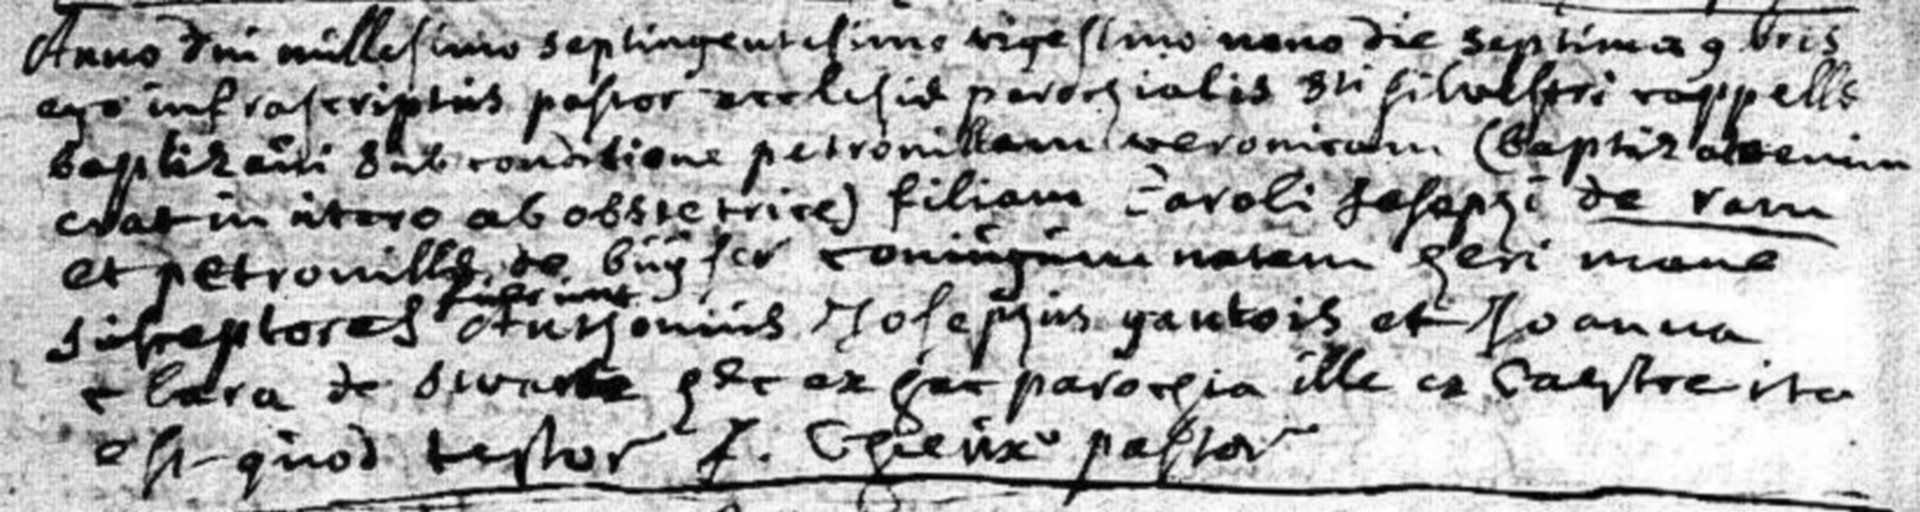 Anno dni millesimo septingentesimo vigesimo nono die septima 9bris
ego infrascriptus pastor ecclesiæ parochialis sti silvestri cappella
baptizavi sub conditione petronillam veronicam (baptizata enim
erat in utero ab obstetrice) filiam Caroli Josephi de ram
et petronillæ de buyser coniugum natam heri mane
susceptores fuerunt Anthonius Josephus gantois et Joanna
clara de swarte hæc ex hac parochia ille ex Caestre ita
est quod testor J. pastor